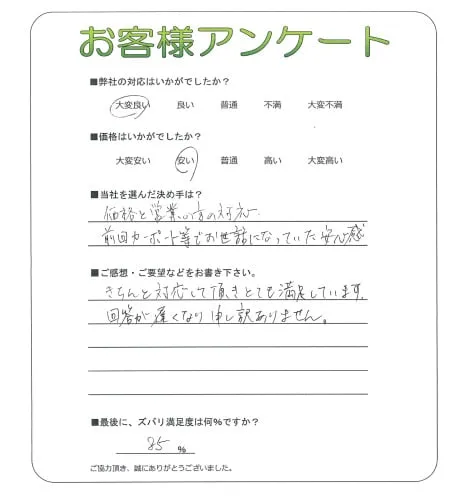 お客様アンケート
■弊社の対応はいかがでしたか？
大変良い 良い 普通 不満 大変不満
■価格はいかがでしたか？
大変安い 安い 普通 高い 大変高い
■当社を選んだ決め手は？
価格と営業の方の対応
前回カーポート等でお世話になっていた安心感
■ご感想・ご要望などをお書き下さい。
きちんと対応して頂きとても満足しています。
回答が遅くなり申し訳ありません。
■最後に、ズバリ満足度は何%ですか？
85 %
ご協力頂き、誠にありがとうございました。